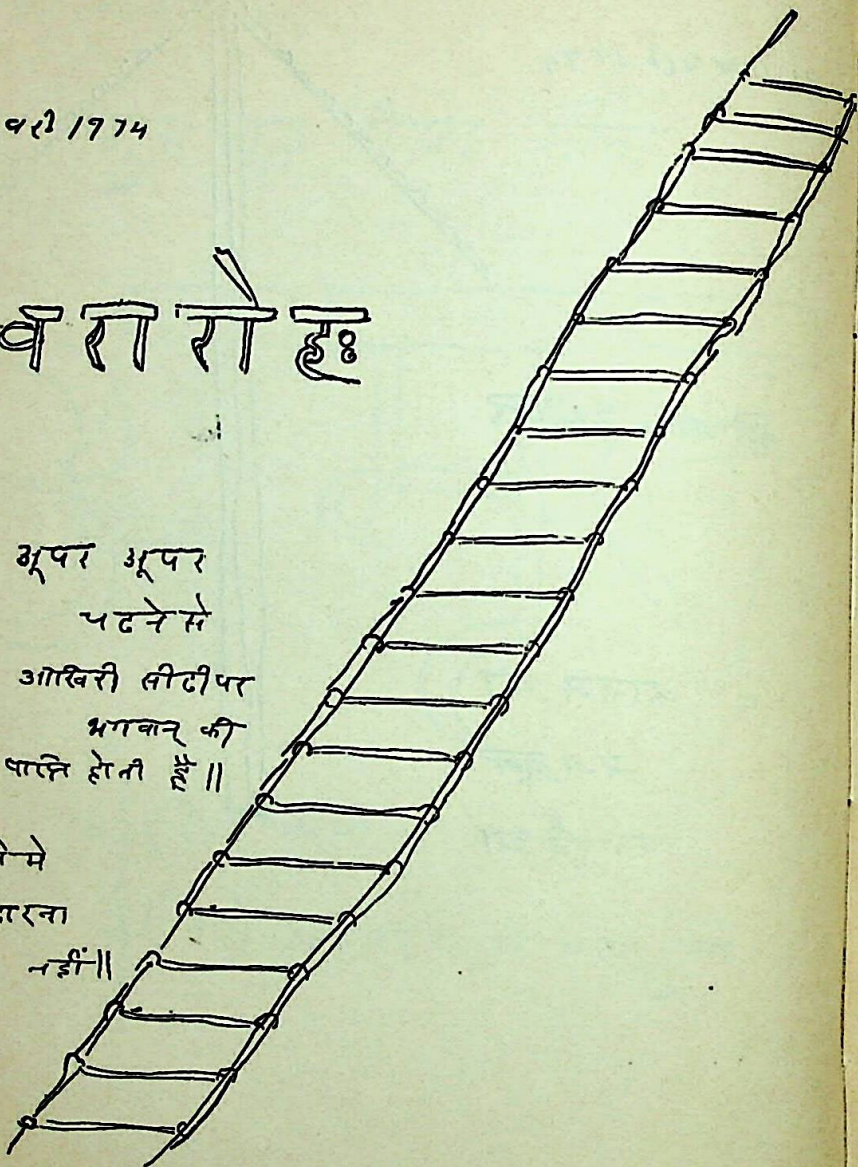 वरी 1974
वरारोहः
अूपर अूपर
चढने से
आखिरी सीढीपर
भगवान् की
प्राप्ति होती है॥
मे
नहीं॥